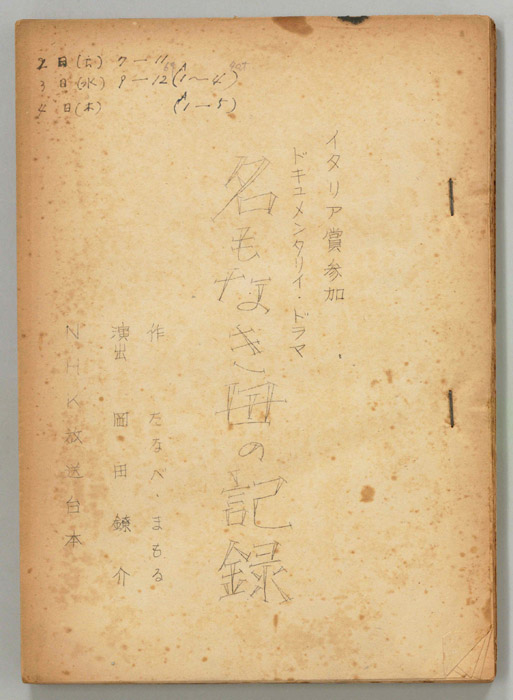 2日(火) 7―11
3日(水) 9―12(1〜4)
4日(木) (1―5)
イタリア賞参加
ドキュメンタリイ・ドラマ
名もなき母の記録
作 たなべ・まもる
演出 岡田鐐介
NHK放送台本